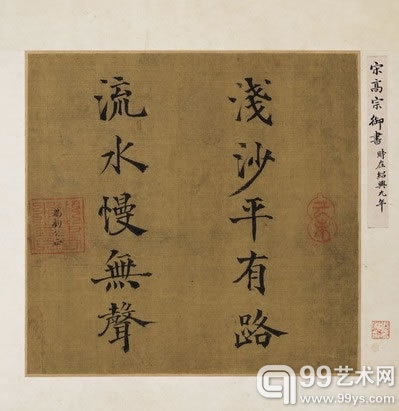 宋高宗御書 時在紹興九年
淺沙平有路
流水慢無聲
99艺术网
www.99ys.com